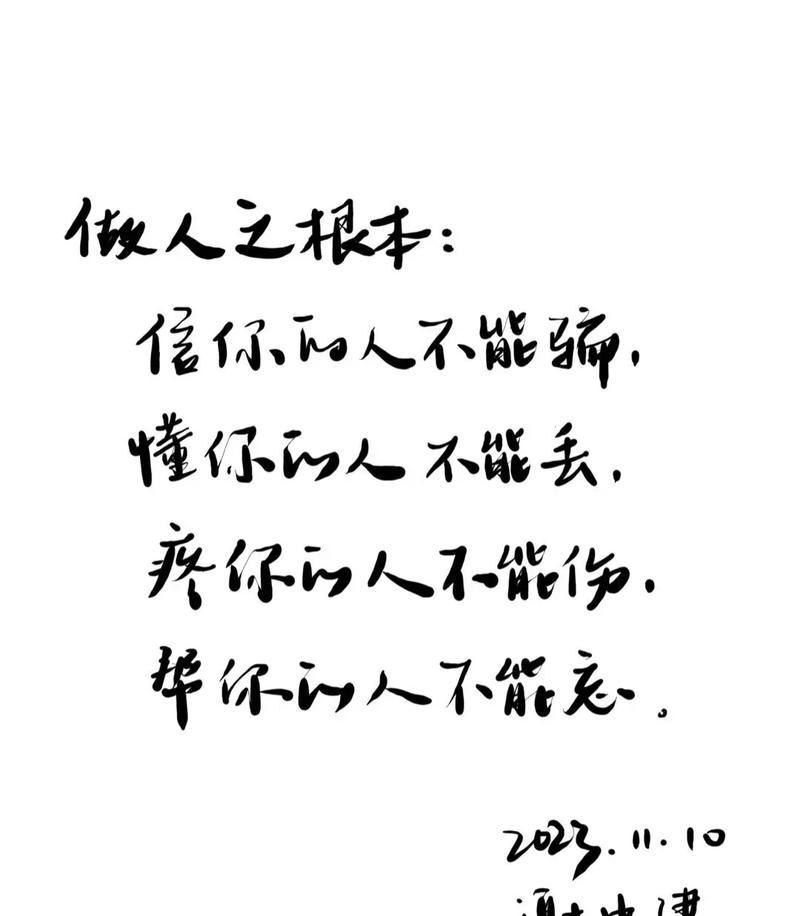 做人之根本：
信你的人不能骗，
懂你的人不能丢，
疼你的人不能伤，
帮你的人不能忘。
2023.11.10